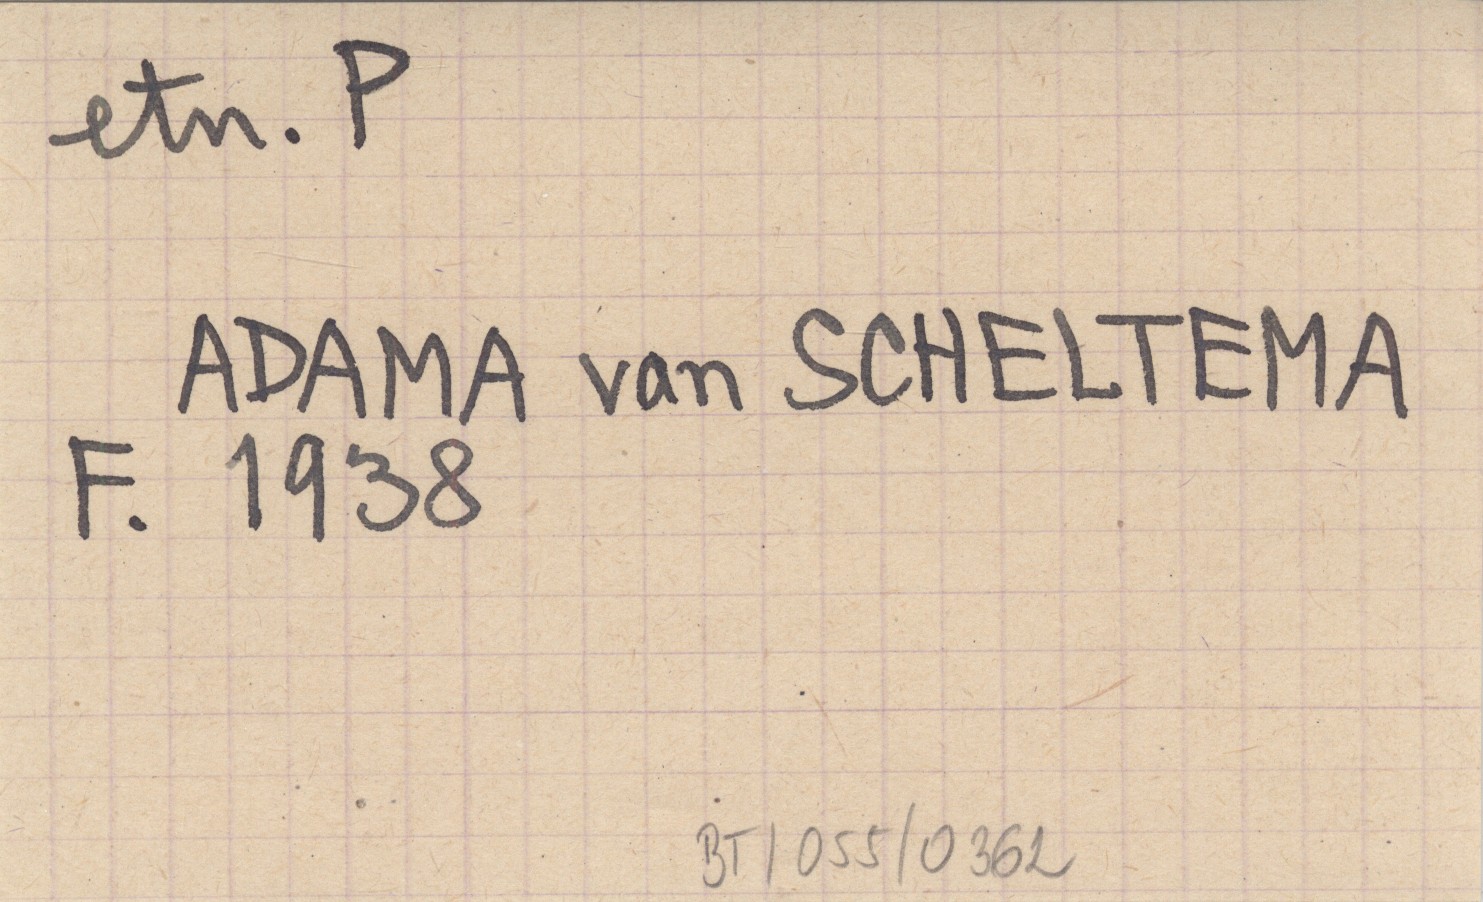 etn. P
ADAMA van SCHELTEMA
F. 1938
BT/055/0362